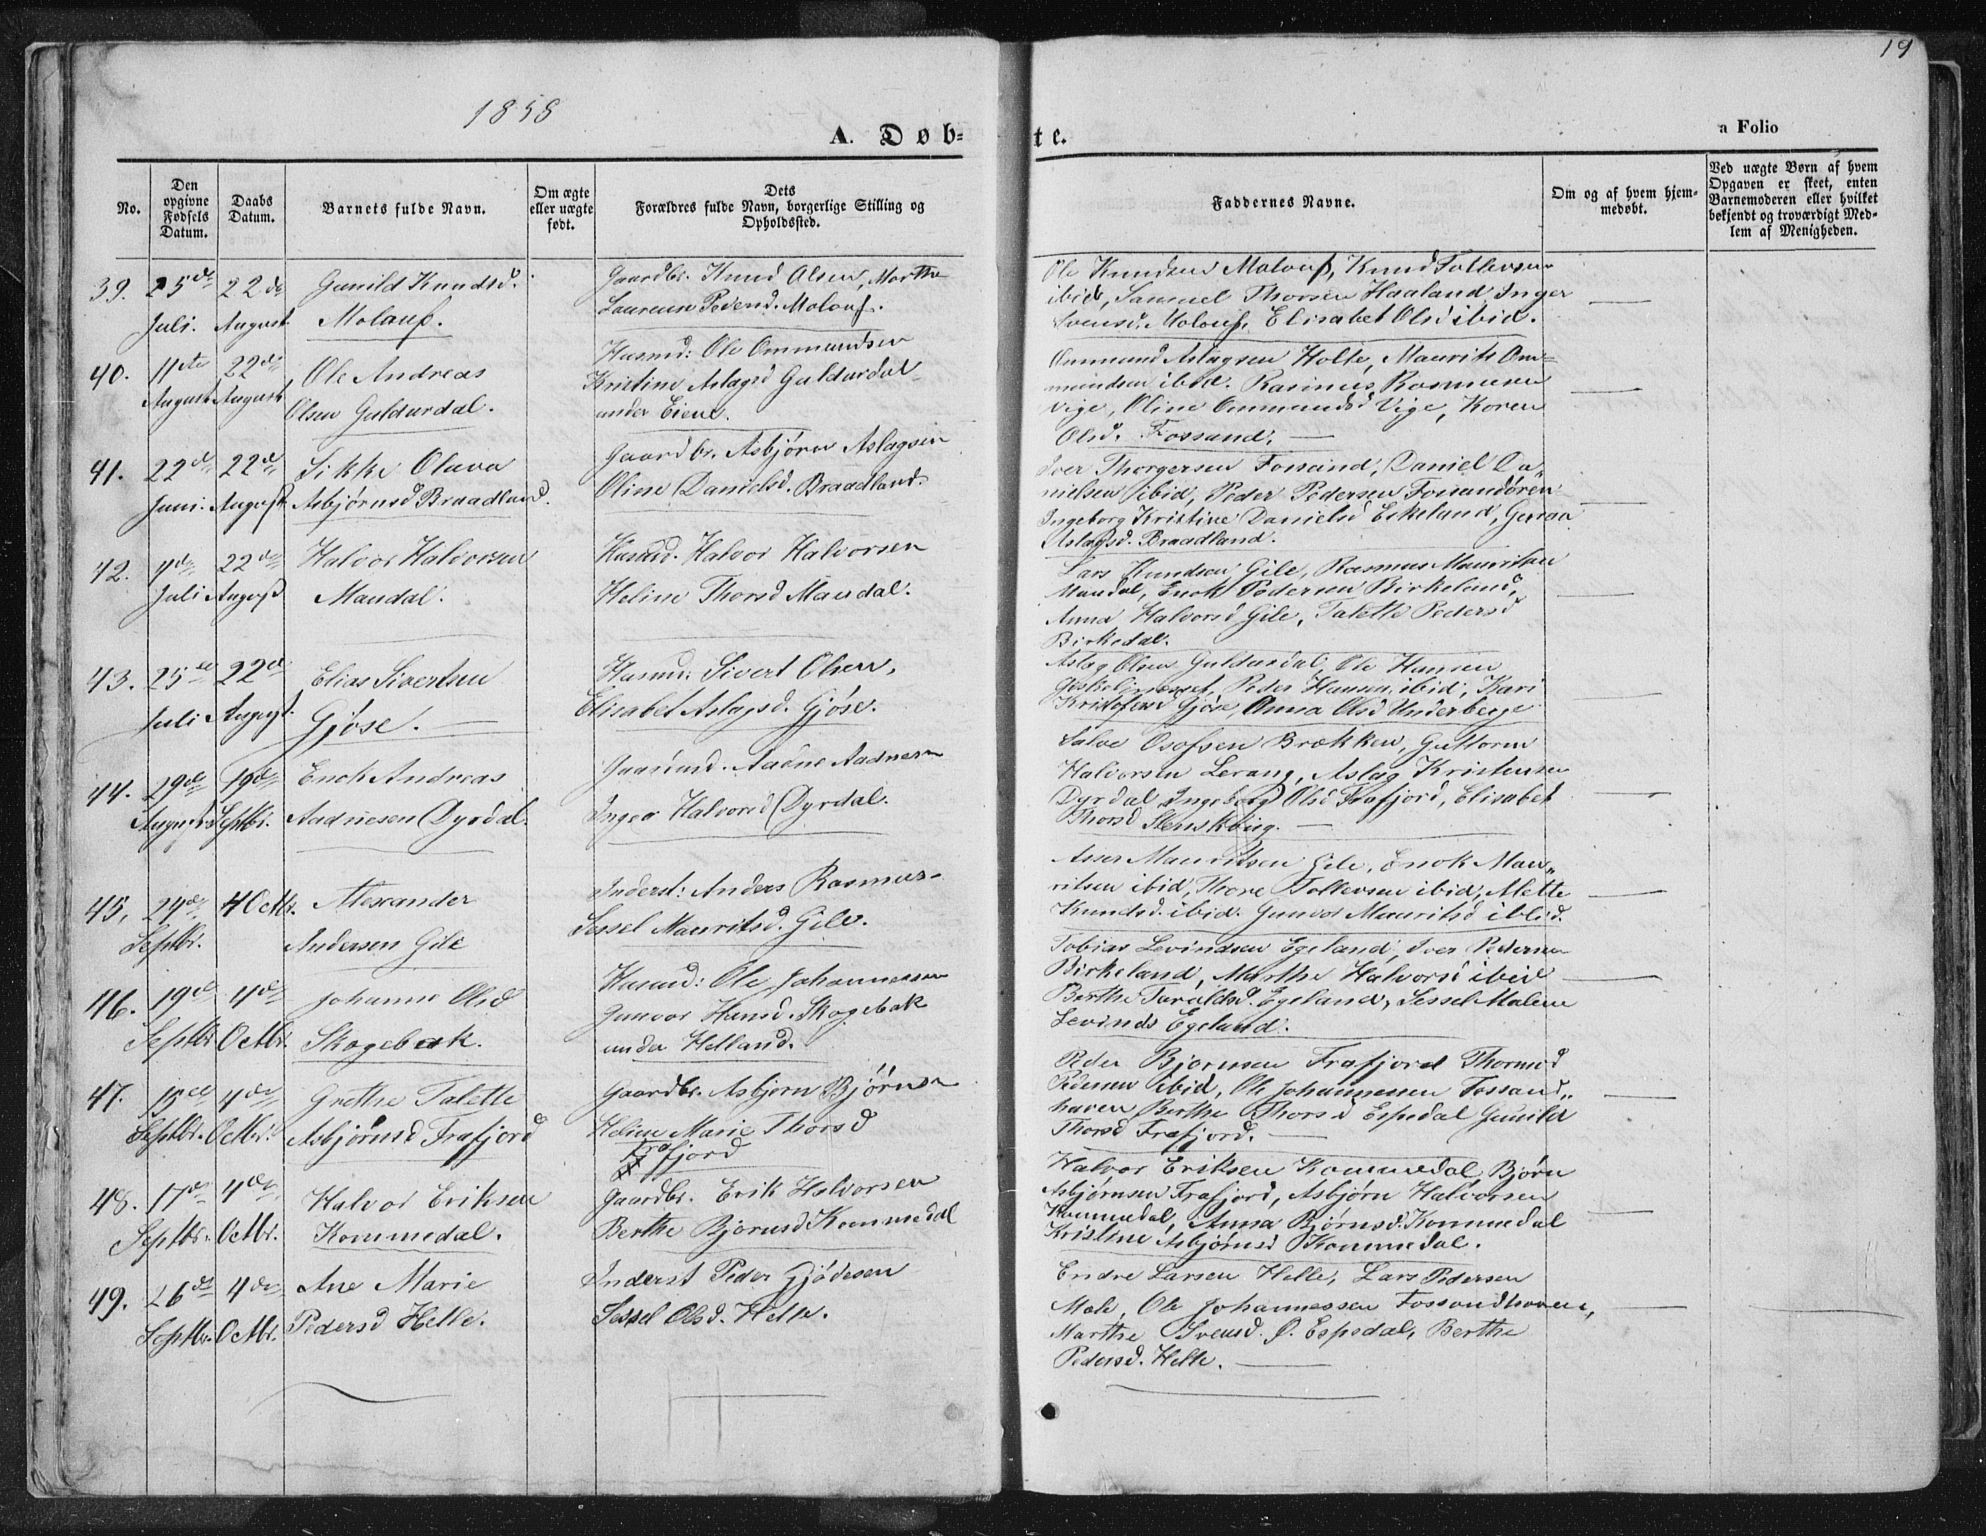 19
1858
A. Døb-
te.
a Folio
No.
Den opgivne Fødsels Datum.
Daabs Datum.
Barnets fulde Navn.
Om ægte eller uægte født.
Dets Forældres fulde Navn, borgerlige Stilling og Opholdssted.
Faddernes Navne.
Om og af hvem hjem-medøbt.
Ved uægte Børn af hvem Opgaven er skeet, enten Barnemoderen eller hvilket bekjendt og troværdigt Med-lem af Menigheden.
39. 25de Juli. 22de August
Gunild Knudsd.
Molauf.
Gaardbr. Knud Olsen, Marthe
Laurense Pedersd. Molauf.
Ole Knudsen Molauf, Knud Tollevsen
ibid, Samuel Thorsen Haaland, Inger
Svensd. Molauf, Elisabet Olsd ibid.
40. 11te August 22de August
Ole Andreas
Olsen Guldurdal.
Husmd: Ole Ommundsen
Kristine Aslagsd Guldurdal
under Eiene.
Ommund Aslagsen Holte, Maurits Om-
mundsen ibid. Rasmus Rasmusen
Vige, Oline Ommundsd Vige, Koren
Olsd. Fossand.
41. 22de Juni. 22de August
Sikke Olava
Asbjørnsd Braadland.
Gaardbr. Asbjørn Aslagsen
Oline Danielsd. Braadland.
Iver Thorgersen Fossand, Daniel Da-
nielsen ibid, Peder Pedersen Fossandøren
Ingeborg Kristine Danielsd Eikeland,
Aslagsd. Braadland.
42. 4de Juli 22de August
Halvor Halvorsen
Mandal.
Husmd. Halvor Halvorsen
Heline Thorsd Mandal.
Lars Knudsen Gile, Rasmus Mauritsen
Mandal, Enok Pedersen Birkeland,
Anna Halvorsd Gile, Talette Pedersd
Birkedal.
43. 25de Juli 22de August.
Elias Sivertsen
Gjøse.
Husmd: Sivert Olsen,
Elisabet Aslagsd. Gjøse.
Aslag Olsen Guldurdal, Ole Hansen
Peder Hansen ibid, Kari
Kristofersd Gjøse, Anna Olsd Underberge
44. 29de August 19de Septbr.
Enok Andreas
Aadnesen Dyrdal.
Aadne Aadnesen
Inger Halvorsd Dyrdal.
Salve Osofsen Brækken, Guttorm
Halvorsen Lerang, Aslag Kristensen
Dyrdal Ingeborg Olsd Frafjord, Elisabet
Thorsd
45, 24de Septbr. 4 Octbr.
Alexander
Andersen Gile
Inderst: Anders Rasmus-
Sessel Mauritsd. Gile.
Asser Mauritsen Gile, Enok Mau-
ritsen ibid, Thore Tollevsen ibid, Mette
Knudsd. ibid. Gunvor Mauritsd ibid.
46. 19de Septbr. 4de Octbr.
Johanne Olsd
Skogebak.
Husmd: Ole Johannessen
Gunvor Hansd. Skogebak
under Helland.
Tobias Levindsen Egeland, Iver Pedersen
Birkeland, Marthe Halvorsd ibid
Berthe Taraldsd. Egeland, Sessel Malene
Levinds Egeland.
47. 15de Septbr. 4de Octbr.
Grethe Talette
Asbjørnsd Frafjord
Gaardbr. Asbjørn Bjørnsen
Heline Marie Thorsd
Frafjord
Peder Bjørnsen Frafjord Thormod
Pedersen ibid, Ole Johannessen Fossand-
haven Berthe Thorsd Espedal Gunild
Thorsd Frafjord.
48. 17de Septbr. 4de Octbr.
Halvor Eriksen
Kommedal.
Gaardbr. Erik Halvorsen
Berthe Bjørnsd Kommedal
Halvor Eriksen Kommedal Bjørn
Asbjørnsen Frafjord, Asbjørn Halvorsen
Kommedal, Anna Bjørnsd. Kommedal
Kristine Asbjørnsd Kommedal.
49. 26de Septbr. 4de Octbr.
Ane Marie
Pedersd Helle.
Inderst Peder Gjødesen
Sessel Olsd. Helle.
Endre Larsen Helle, Lars Pedersen
Mæle, Ole Johannessen Fossandhaven,
Marthe Svensd. Ø. Espedal, Berthe
Pedersd. Helle.